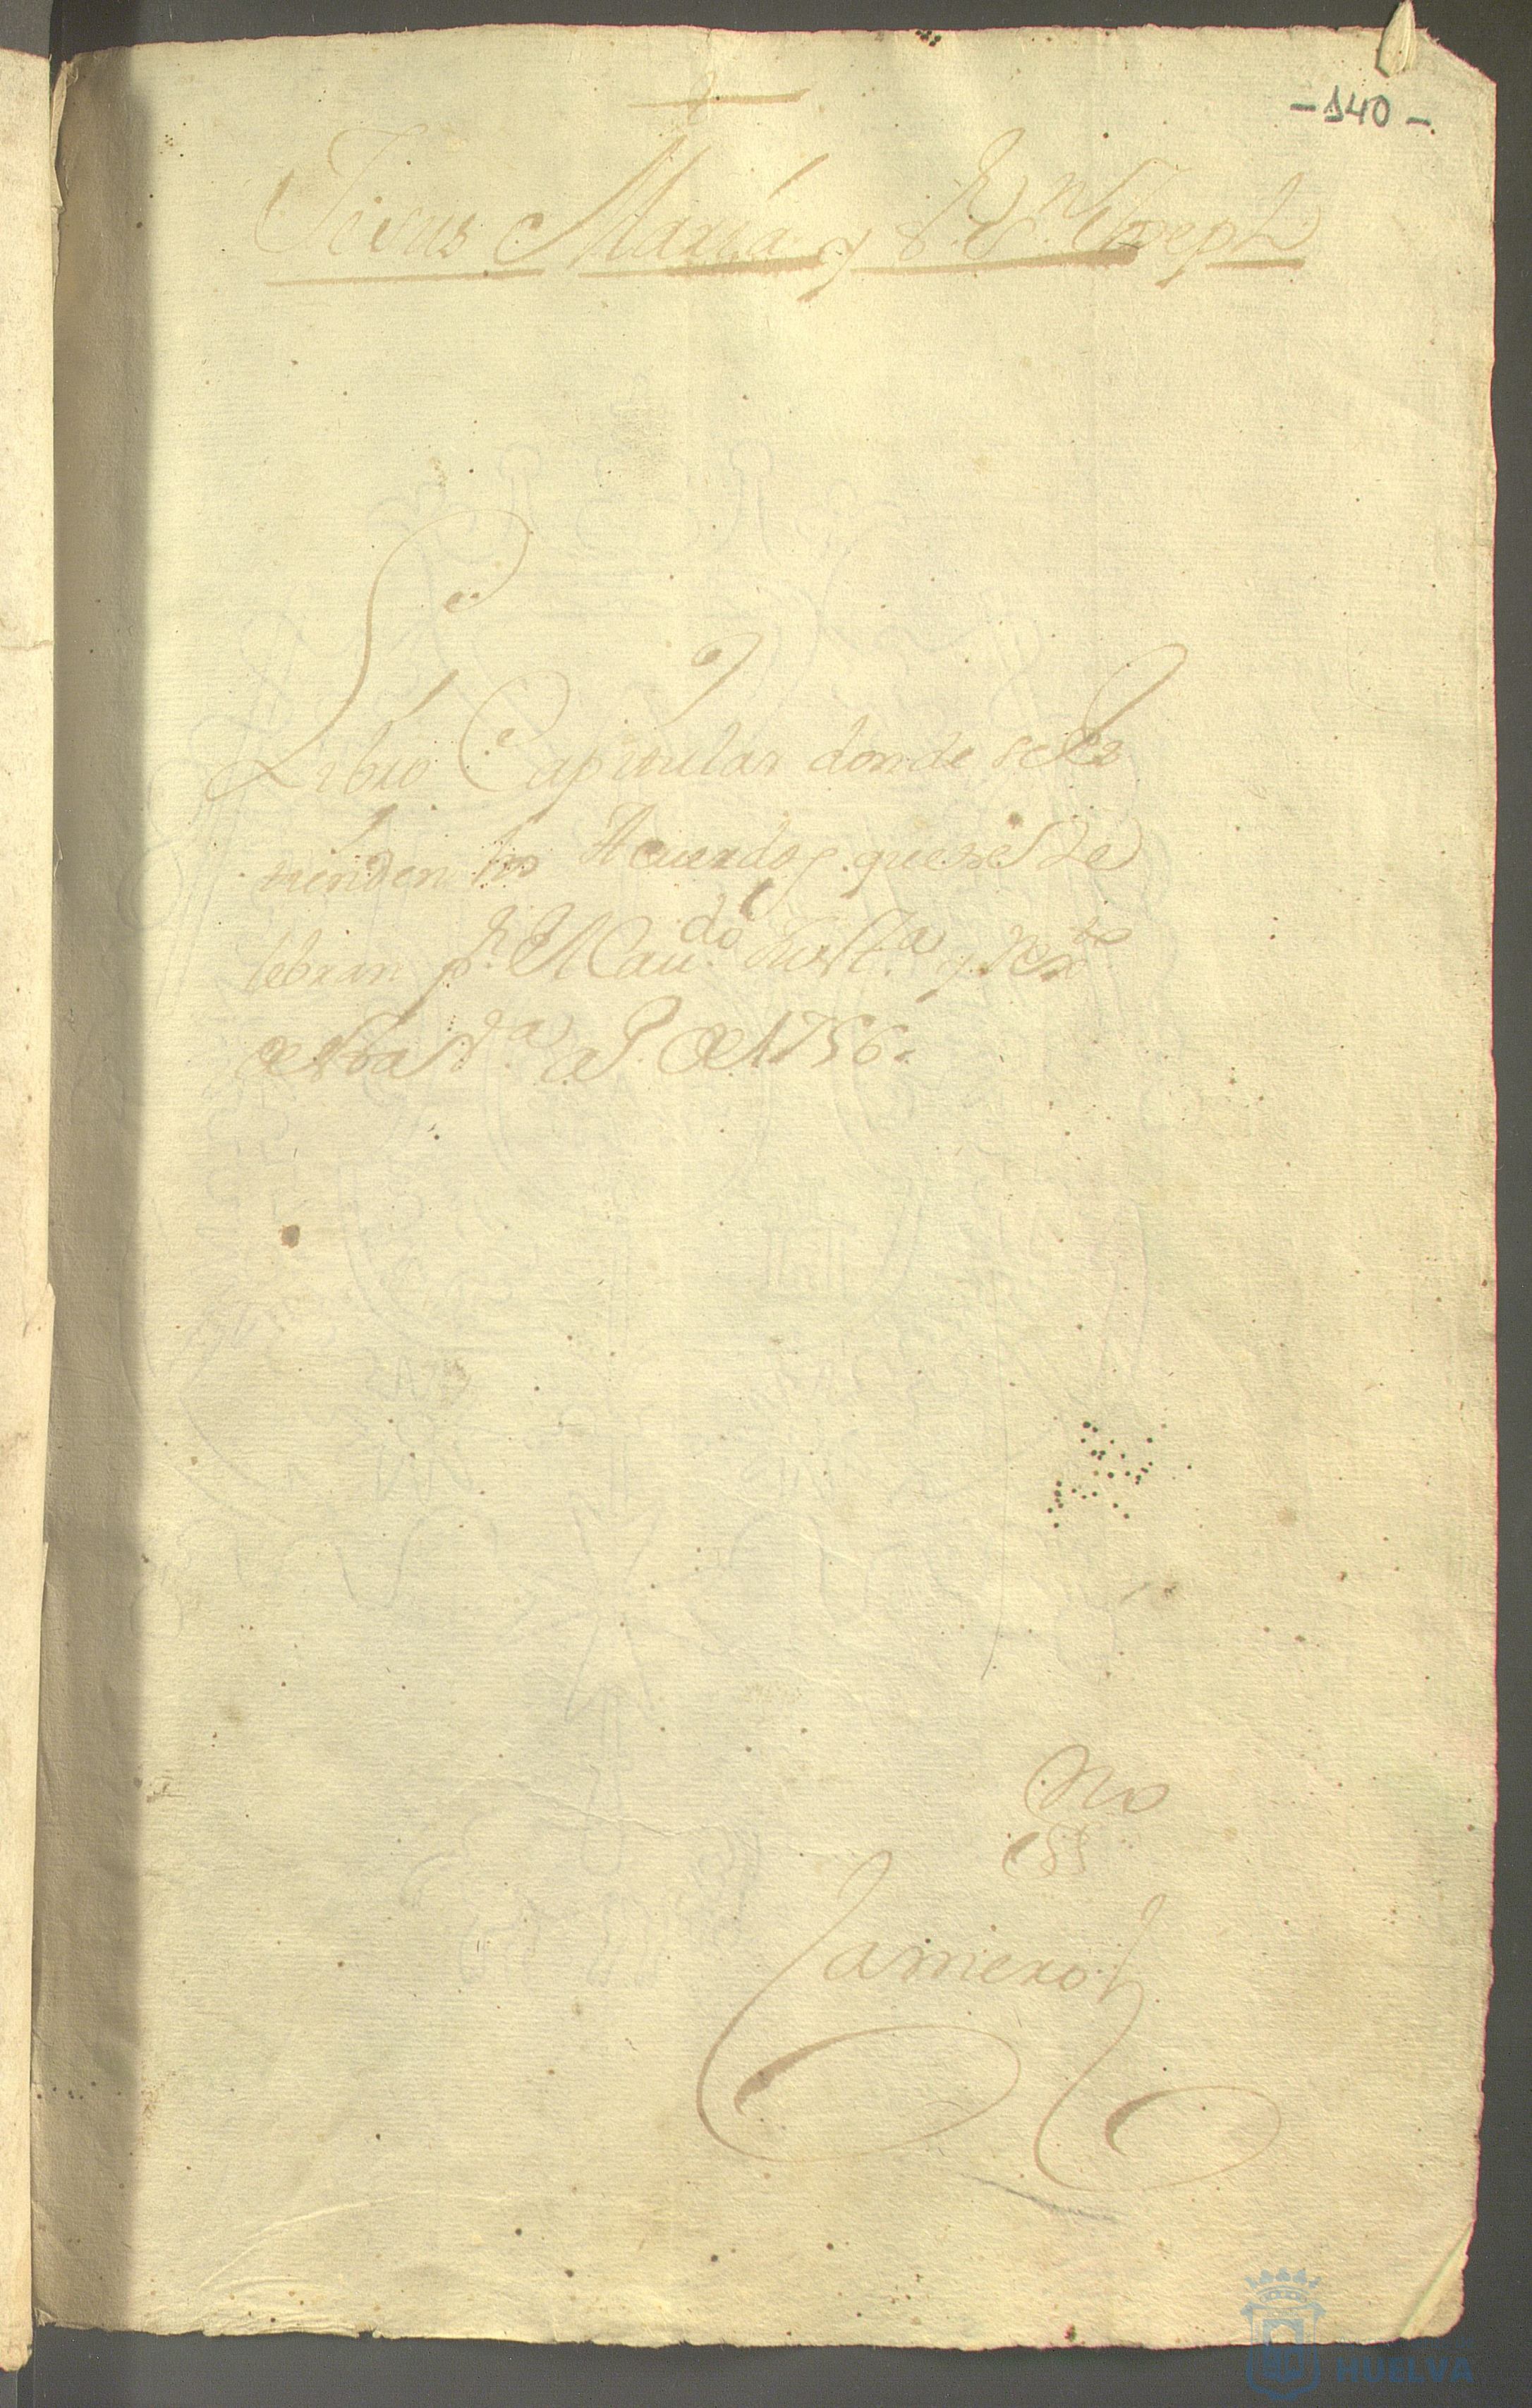 - 140 -
Jesus Maria y S.r S.n Joseph
Libro Capitular donde se Es
tienden los Acuerdos que se Ze
lebran p.r El Cau.do Just.a y
de esta V.a a.s de 1756.
Ess
Zamero
HUELVA